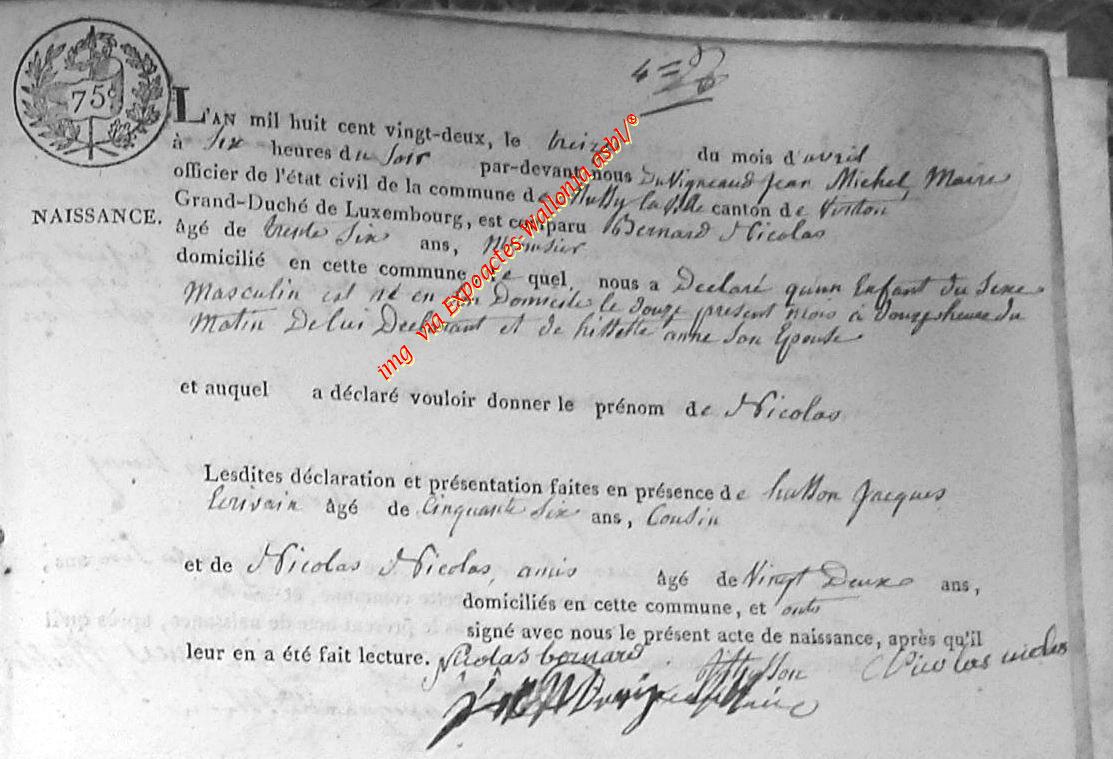 75c
4=
L'AN mil huit cent vingt-deux, le treize du mois d'avril
à Six heures du Soir par-devant nous Duvigneaud Jean Michel, Maire
officier de l'état civil de la commune de Mussy la ville canton de Virton
NAISSANCE.
Grand-Duché de Luxembourg, est comparu Bernard Nicolas
âgé de trente Six ans, Menuisier
domicilié en cette commune le quel, nous a Declaré qu'un Enfant du Sexe
Masculin est né en son Domicile le douze present mois a douze heure du
Matin De lui Declarant et de hissette anne Son Epouse
et auquel a déclaré vouloir donner le prénom de Nicolas
Lesdites déclaration et présentation faites en présence de husson Jacques
Ecrivain âgé de Cinquante Six ans, Cousin
et de Nicolas Nicolas, amis âgé de Vingt Deux ans,
domiciliés en cette commune, et onts
signé avec nous le présent acte de naissance, après qu'il
leur en a été fait lecture. Nicolas bernard Husson Nicolas nicolas
img via Expoactes-Wallonia.asbl/®